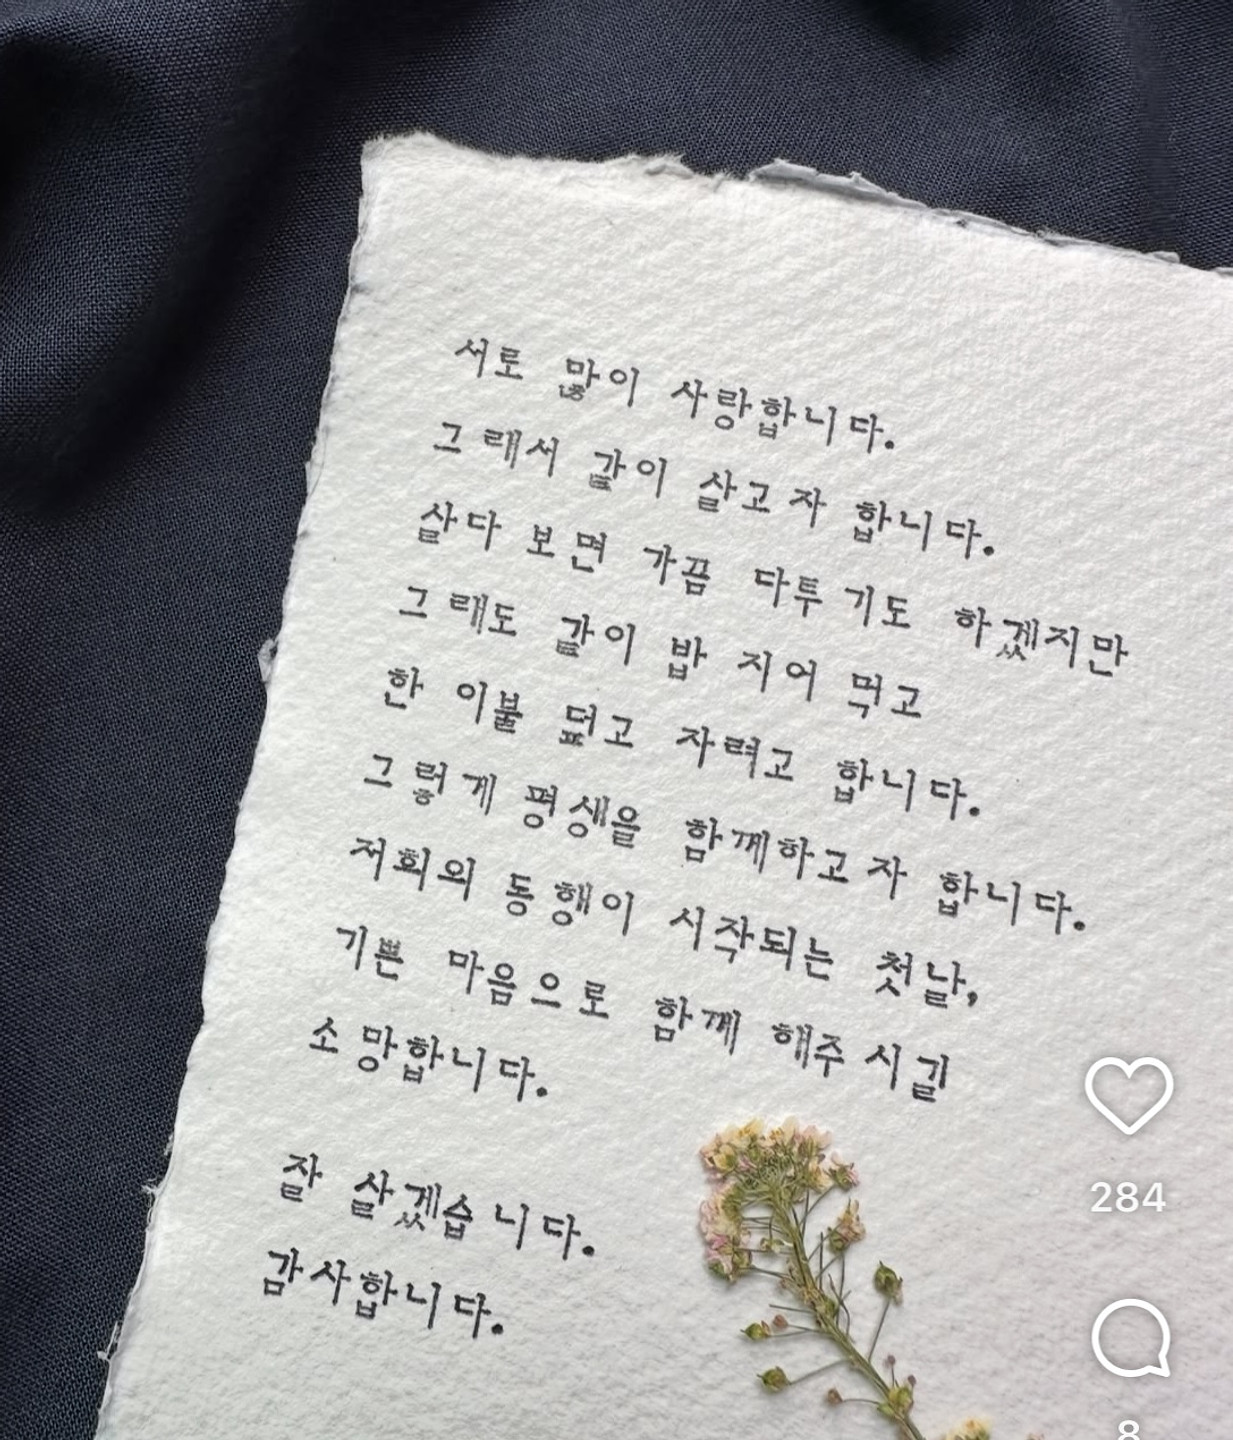 서로 많이 사랑합니다.
그래서 같이 살고자 합니다.
살다 보면 가끔 다투기도 하겠지만
그래도 같이 밥 지어 먹고
한 이불 덮고 자려고 합니다.
그렇게 평생을 함께하고자 합니다.
저희의 동행이 시작되는 첫날,
기쁜 마음으로 함께 해주시길
소망합니다.
잘 살겠습니다.
감사합니다.
284
8